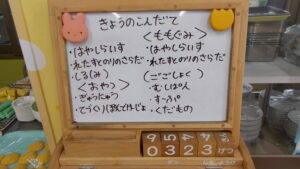 きょうのこんだて
・はやしらいす
・れたすとのりのさらだ
・しる(み)
<おやつ>
・ぎゅうにゅう
・てづくり
<ももぐみ>
・はやしらいす
・れたすとのりのさらだ
(ごごしょく)
・むしぱん
・すーぷ
・くだもの